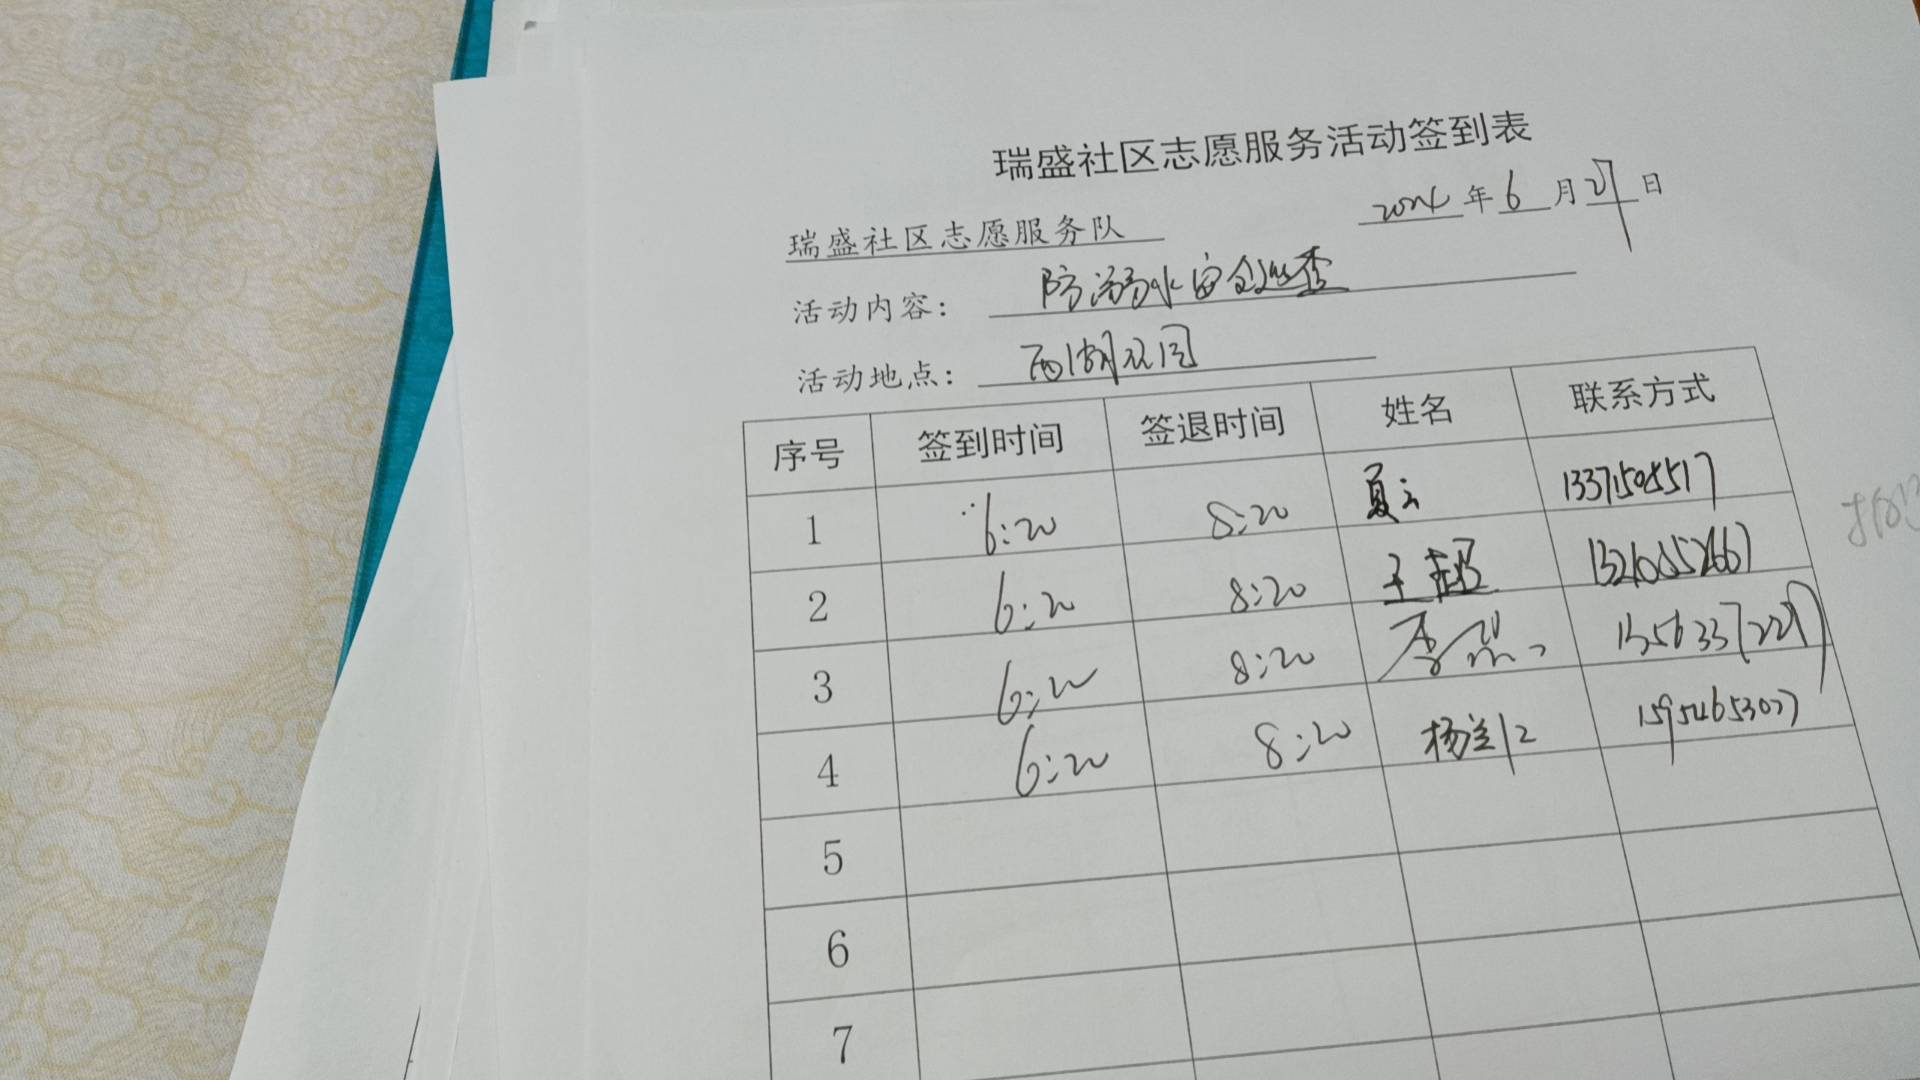 瑞盛社区志愿服务活动签到表
2024年6月27日
瑞盛社区志愿服务队
活动内容: 防溺水安全巡查
活动地点: 西湖公园
序号 签到时间 签退时间 姓名 联系方式
1 6:20 8:20 夏
2 6:20 8:20 王超
3 6:20 8:20 李
4 6:20 8:20 杨兰 15954653077
5
6
7